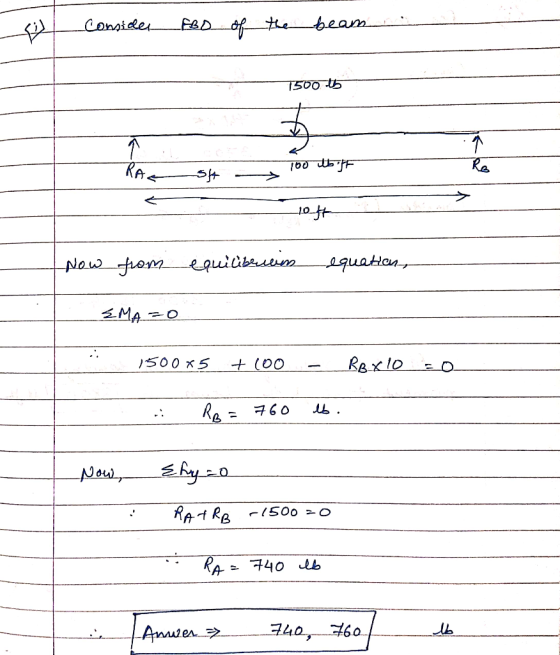 (i) Consider FBD of the beam.
1500 lb
RA 5ft 100 lb·ft RB
10 ft
Now from equilibrium equation,
ΣMA = 0
∴ 1500 x 5 + 100 - RB x 10 = 0
∴ RB = 760 lb.
Now, Σfy = 0
∴ RA + RB - 1500 = 0
∴ RA = 740 lb
∴ Answer ⇒ 740, 760 lb